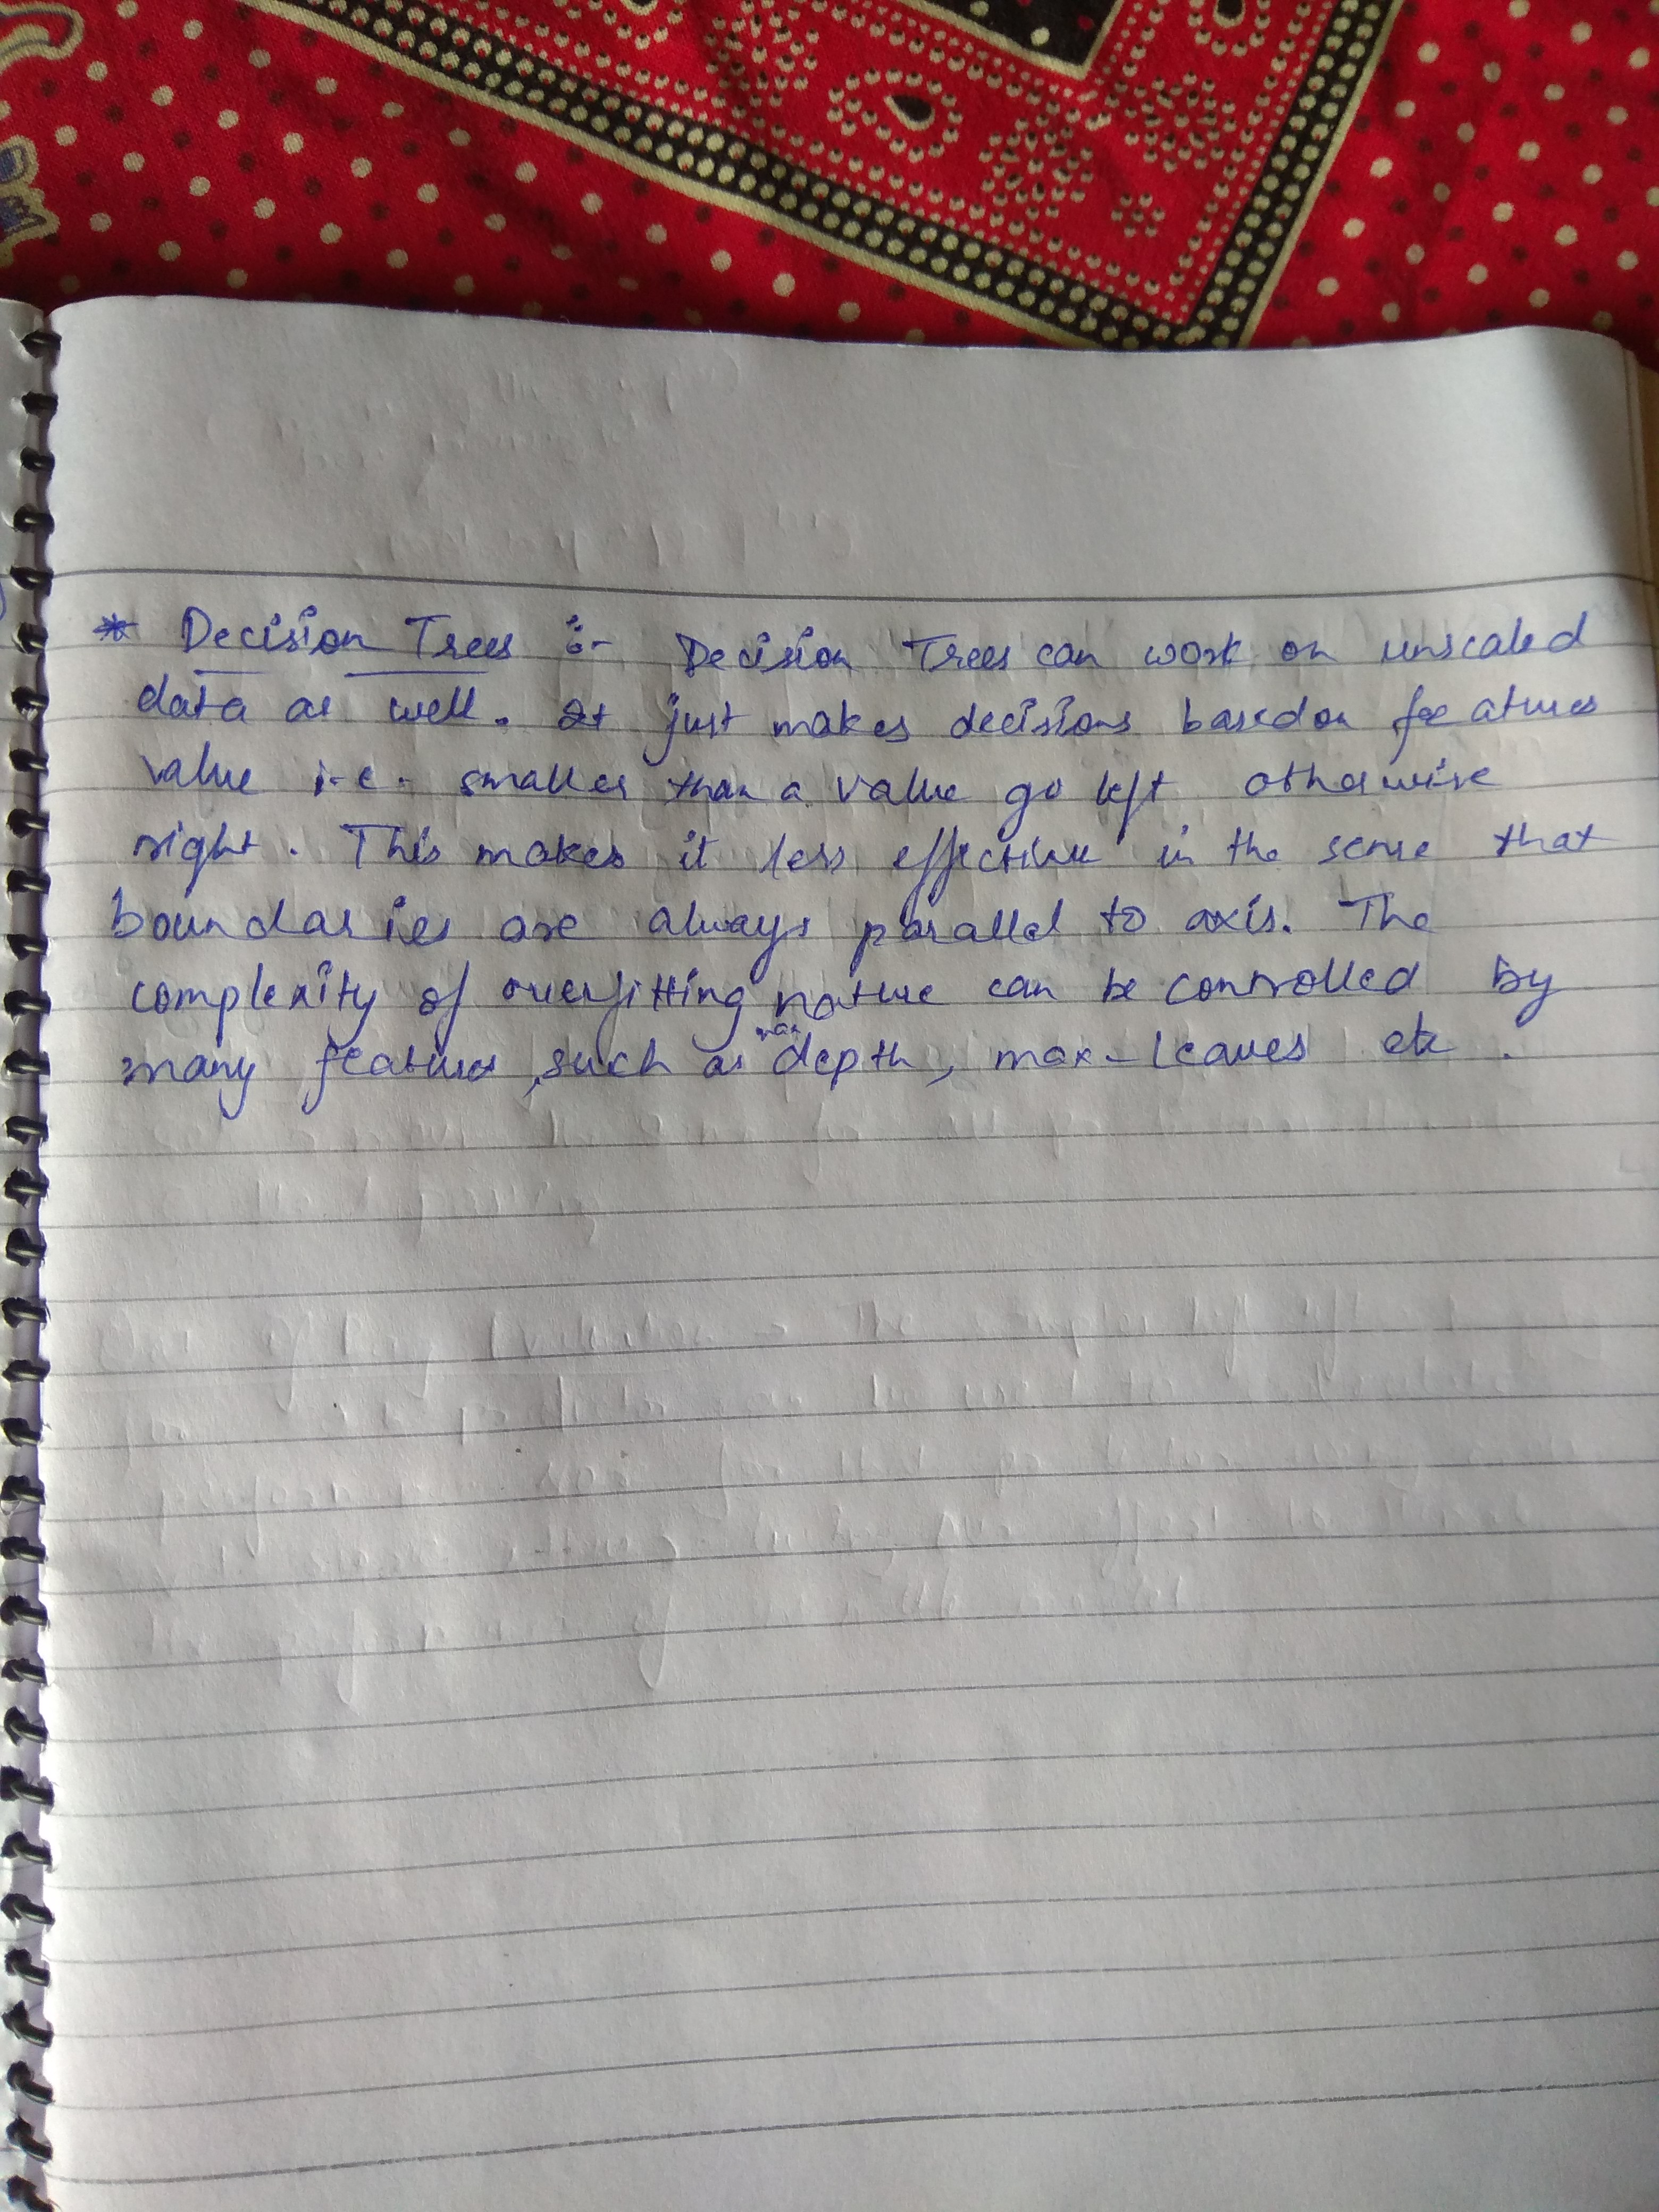 * Decision Trees :- Decision Trees can work on unscaled
data as well. It just makes decisions based on features
value i.e. smaller than a value go left otherwise
right. This makes it less effective in the sense that
boundaries are always parallel to axis. The
complexity of overfitting nature can be controlled by
many features, such as max depth, max-leaves etc.